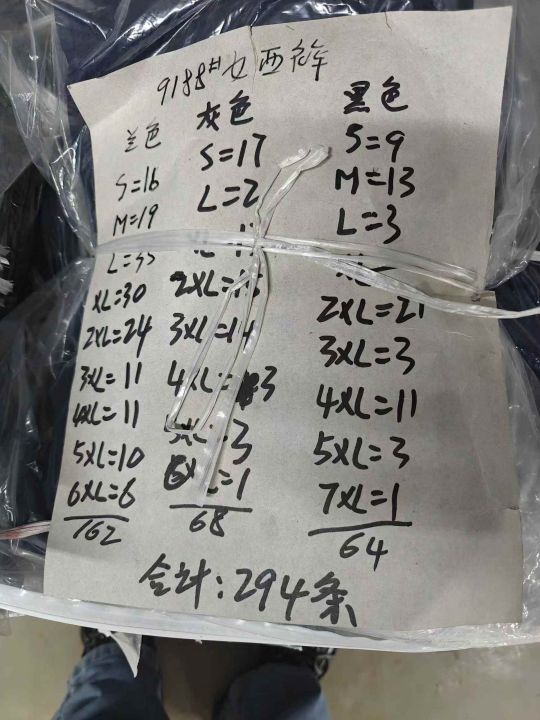 9188#女西裤
兰色
S=16
M=19
L=35
XL=30
2XL=24
3XL=11
4XL=11
5XL=10
6XL=6
162
灰色
S=17
L=2
2XL=15
3XL=14
4XL=3
5XL=3
6XL=1
68
黑色
S=9
M=13
L=3
2XL=21
3XL=3
4XL=11
5XL=3
7XL=1
64
合计:294条